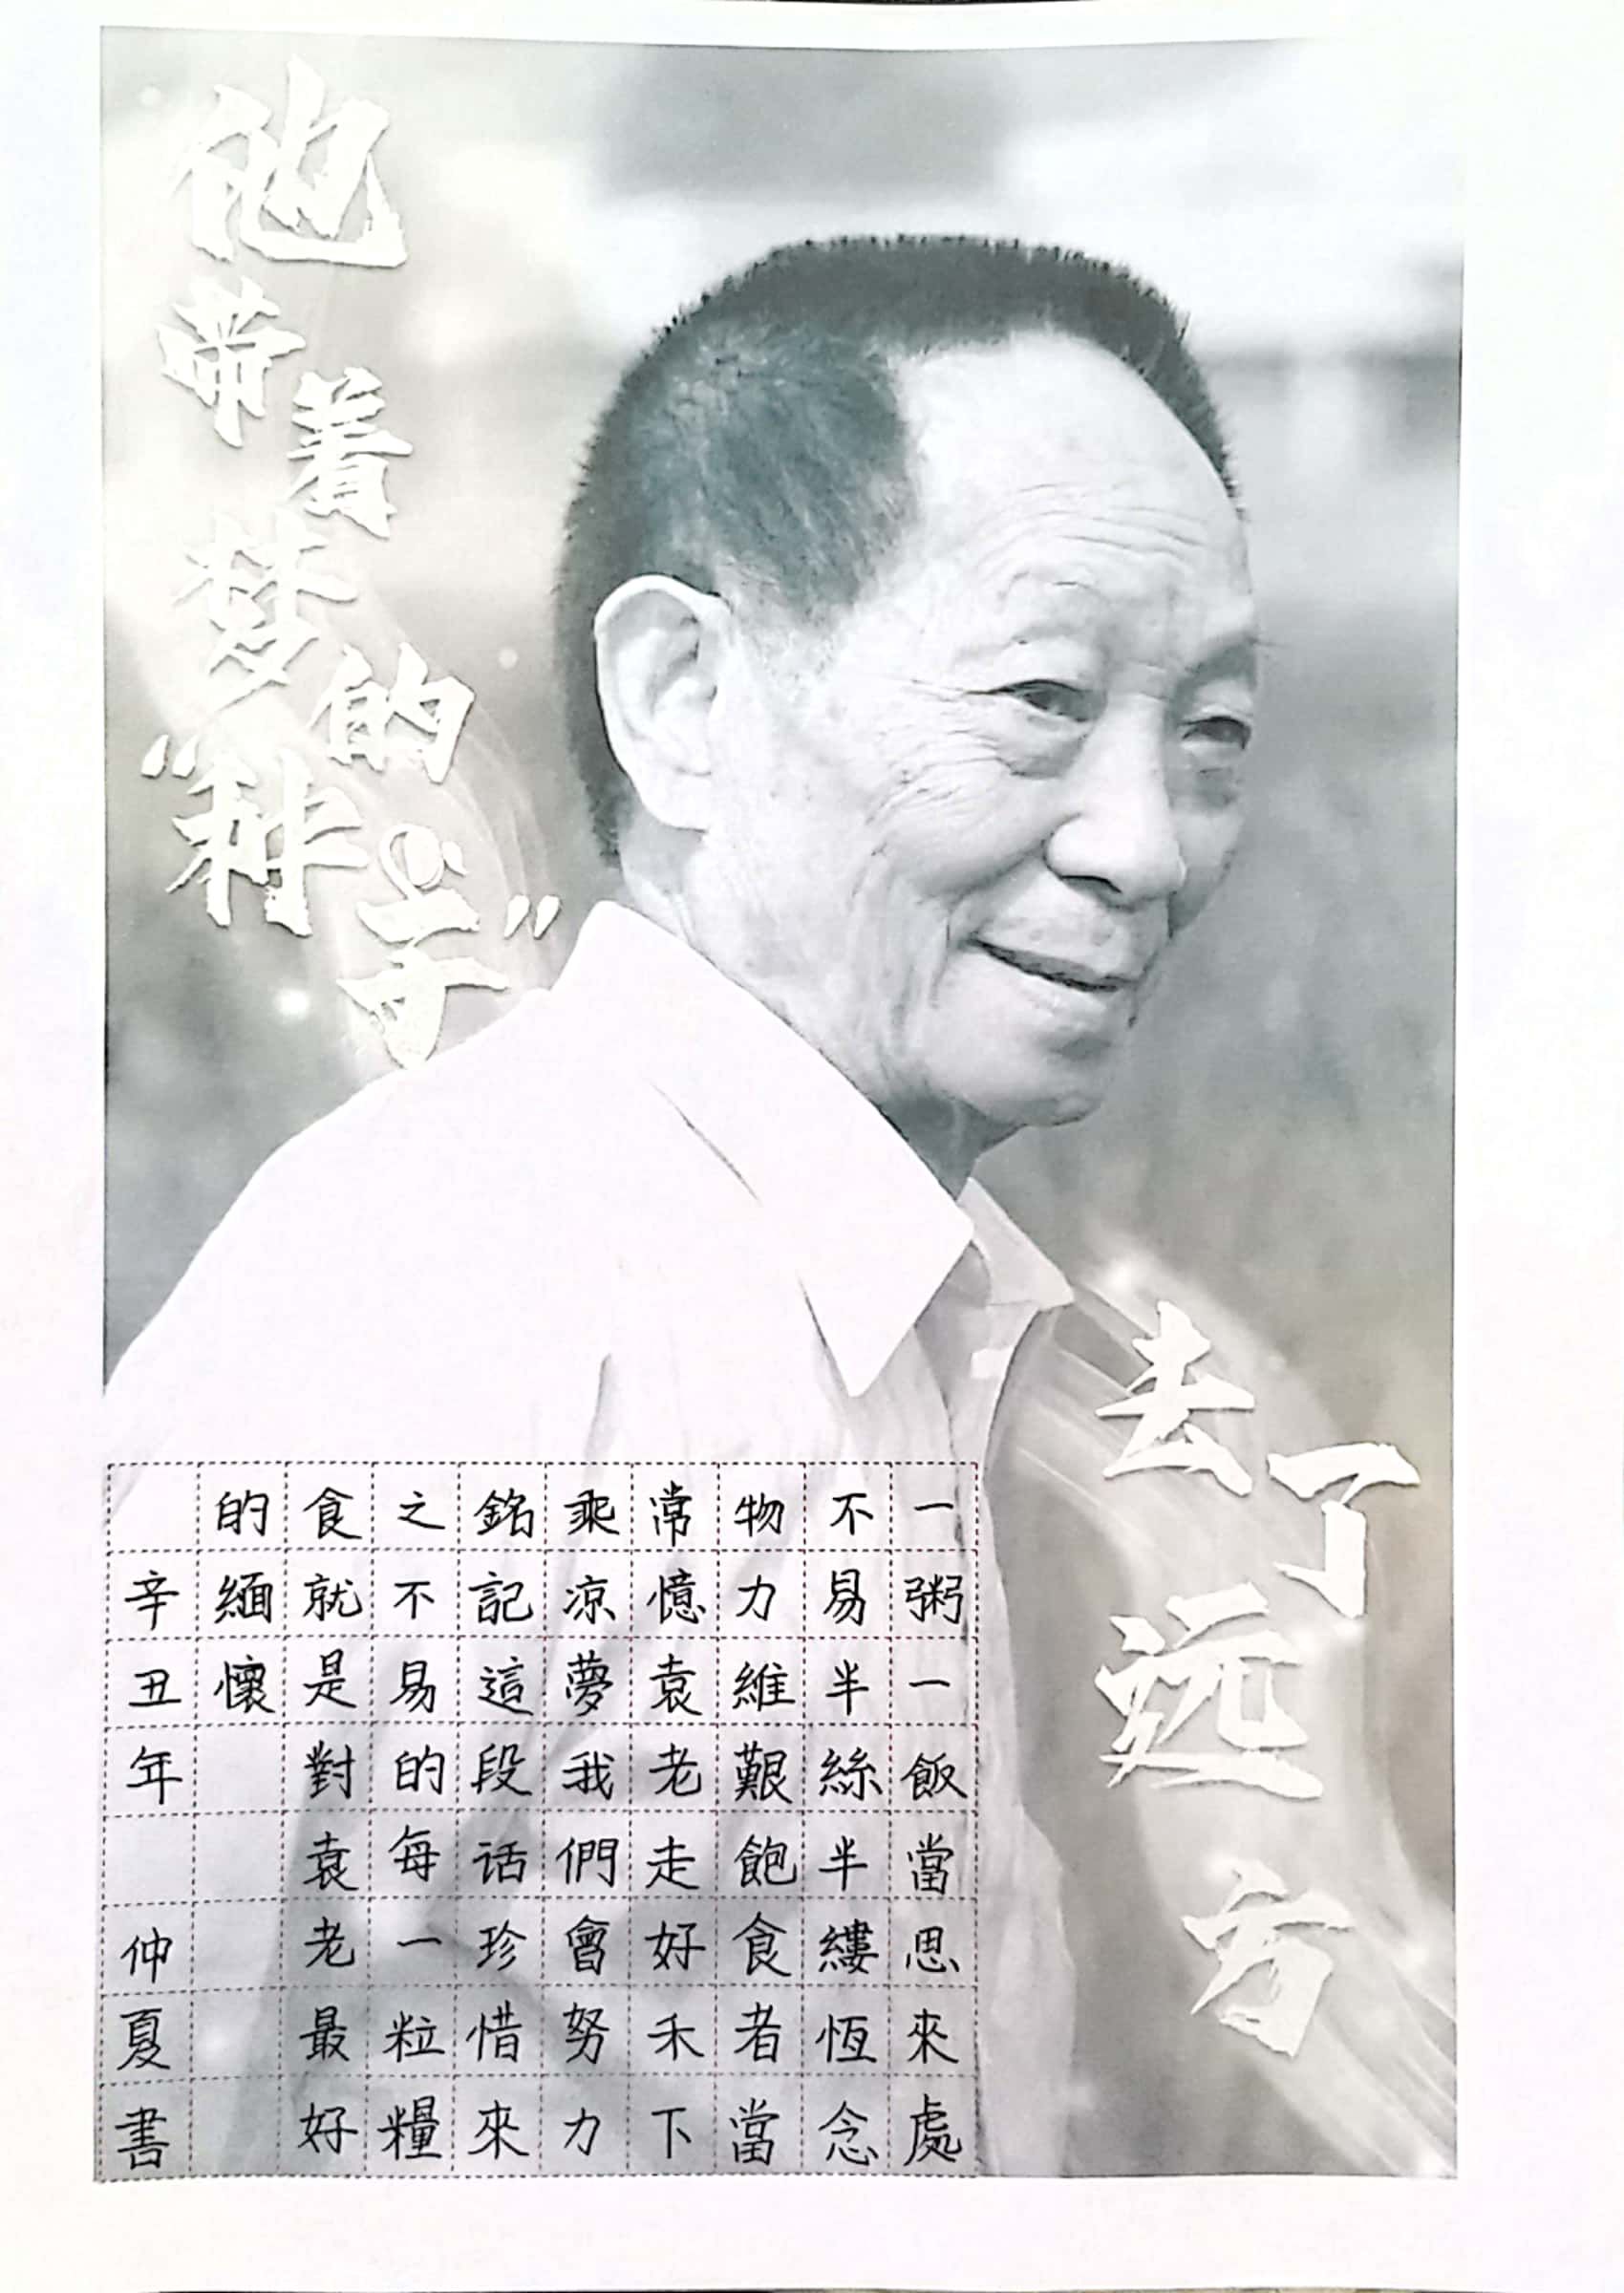 他
带着
梦的
“种子”
去了
远方
一粥一飯當思來處
不易半絲半縷恆念
物力維艱飽食者當
常憶袁老走好禾下
乘凉夢我們會努力
銘記這段话珍惜來
之不易的每一粒糧
食就是對袁老最好
的緬懷
辛丑年 仲夏書